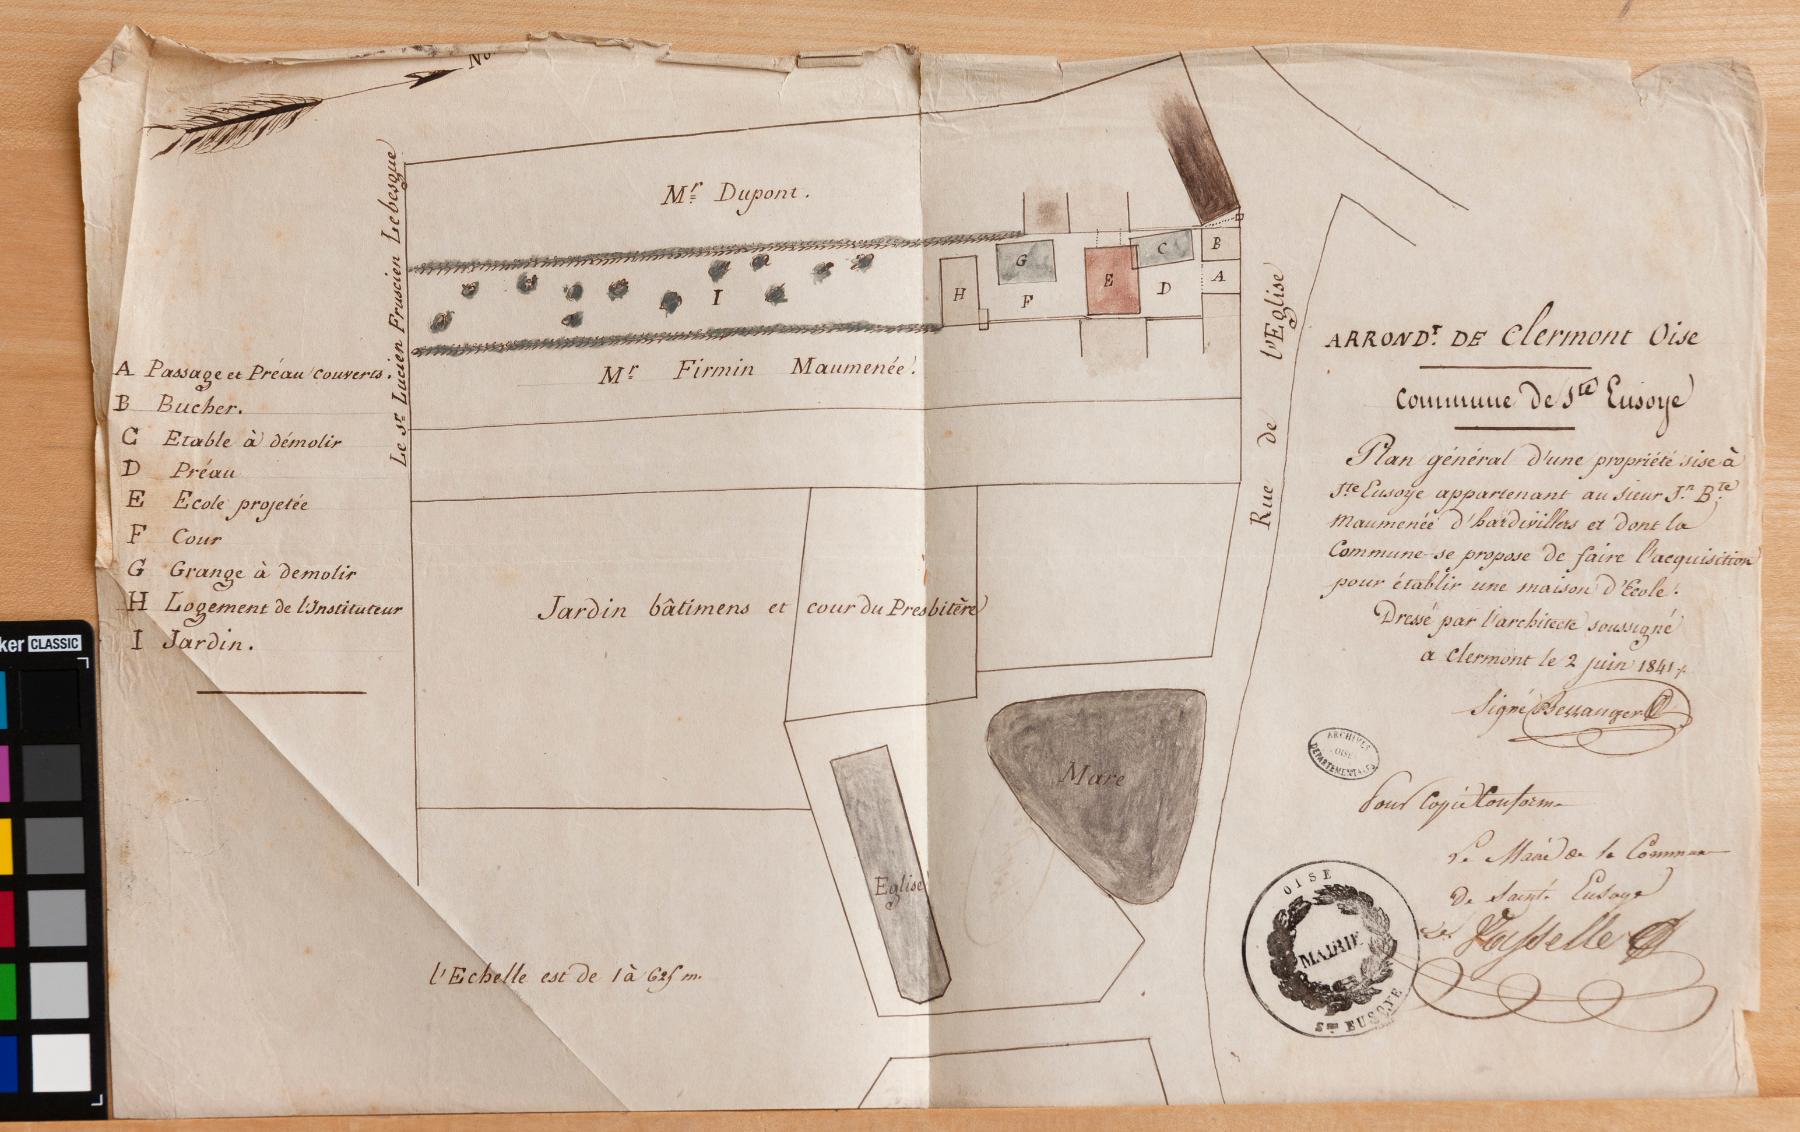 No
Le sr. Lucien Fruscien Lebesgue
Mr Dupont.
G
C
B
H
F
E
D
A
I
Mr Firmin Maumenée.
A Passage et Préau couverts.
B Bucher.
C Etable à démolir
D Préau
E Ecole projetée
F Cour
G Grange à demolir
H Logement de l'Instituteur
I Jardin.
Jardin bâtimens et cour du Presbitère
Mare
Eglise
l'Echelle est de 1 à 625 m.
Rue de l'Eglise
ARRONDt. DE Clermont Oise
Commune de Ste Eusoye
Plan général d'une propriété sise à
Ste Eusoye appartenant au sieur Jn. Bte
Maumenée d'hardivillers et dont la
Commune se propose de faire l'acquisition
pour établir une maison d'Ecole.
Dressé par l'architecte soussigné
a Clermont le 2 juin 1841
Signé
ARCHIVES
OISE
DÉPARTEMENTALES
Pour Copie Conforme
Le Maire de la Commune
De Sainte Eusoye
Vasselle
OISE
MAIRIE
STE EUSOYE
ker CLASSIC